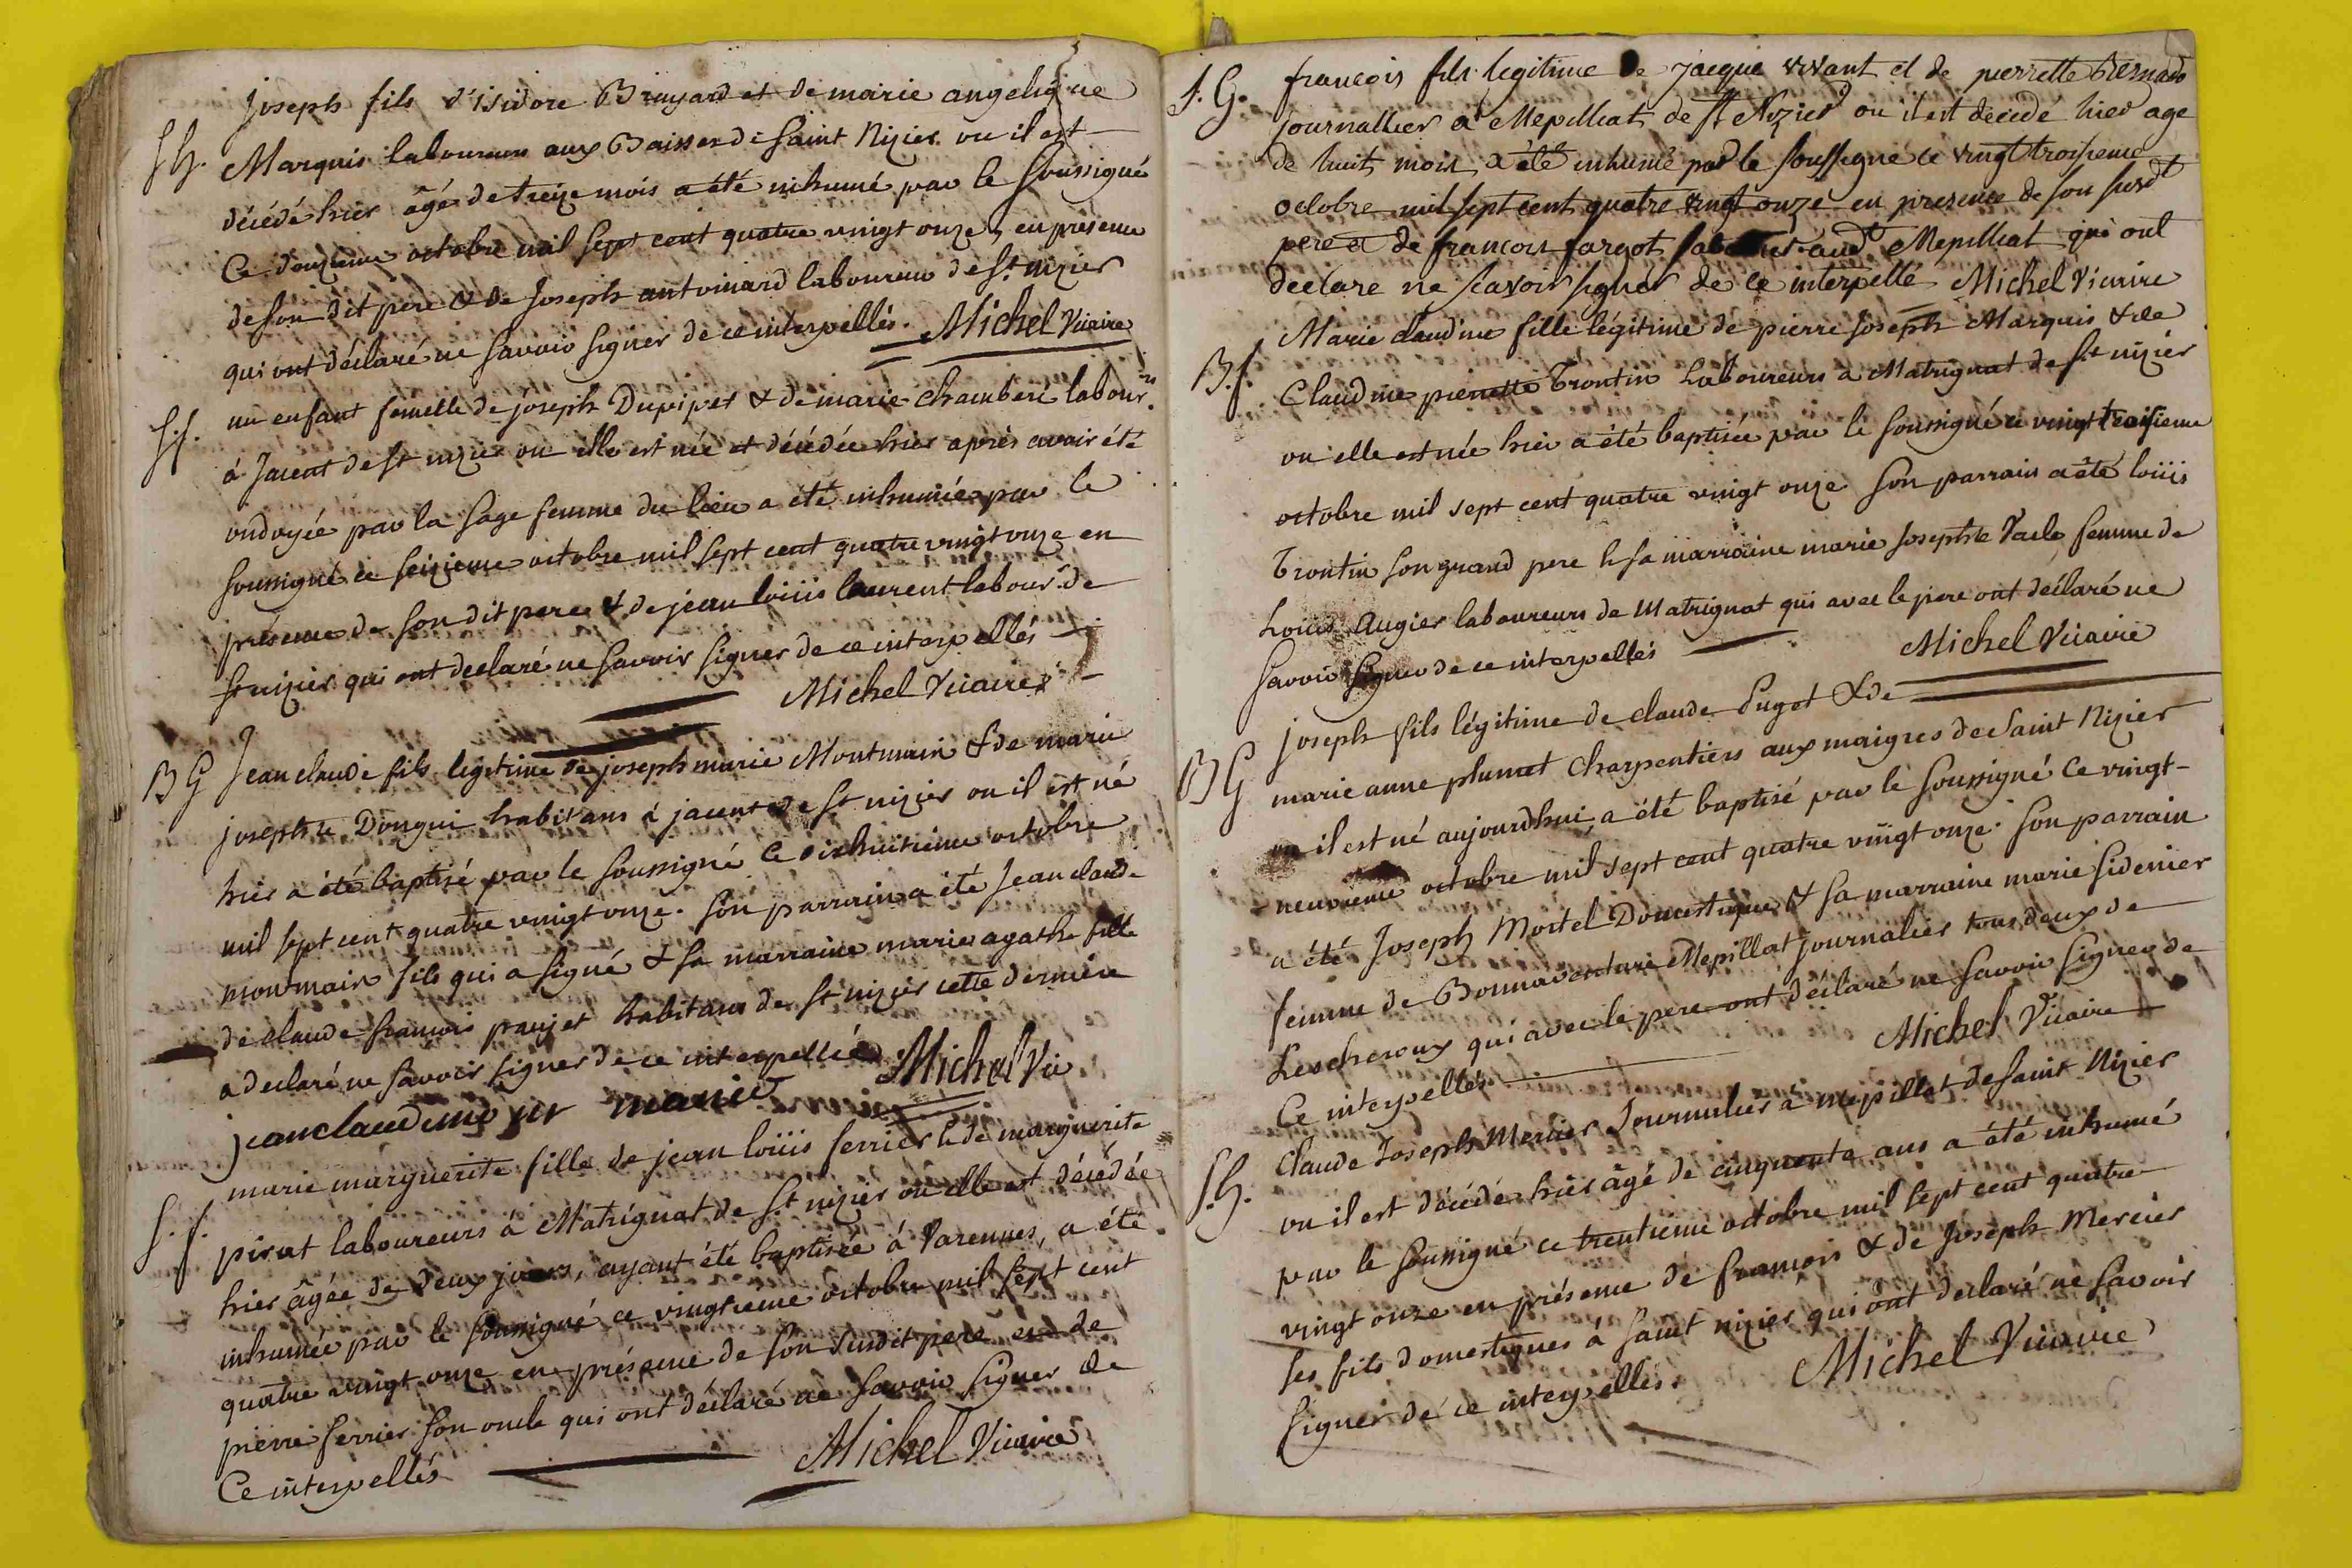 joseph fils d'isidore Bruyard et de marie angelique
S G. Marquis laboureurs aux Baisses de Saint Nizier ou il est
décédé hier âgé de treize mois a été inhumé par le soussigné
Ce douzieme octobre mil sept cent quatre vingt onze, en présence
de son dit pere & de Joseph antoinard laboureur de St nizier
qui ont déclaré ne savoir signer de ce interpellés. Michel Vicaire
S.f. un enfant femelle de joseph Dupiper & de marie chamberi labour.rs
à jacent de st nizier ou elle est née et décédée hier après avoir été
ondoyée par la sage femme du lieu a été inhumée par le
soussigné ce seizieme octobre mil sept cent quatre vingt onze en
présence de son dit pere & de jean loüis laurent labour.r de
st nizier qui ont declaré ne savoir signer de ce interpellés
Michel Vicaire
B G Jean claude fils legitime de joseph marie Montmain & de marie
josephte Dongui habitans à jacent de st nizier ou il est né
hier a été baptisé par le soussigné Ce dixhuitieme octobre
mil sept cent quatre vingt onze. son parrain a été Jean claude
monmain fils qui a signé & sa marraine marie agathe fille
de claude francois panjet habitans de st nizier cette derniere
a declaré ne savoir signer de ce interpellée Michel Vic
jean claude
S. f. marie marguerite fille de jean loüis ferrier & de marguerite
pirat laboureurs à Matrignat de St nizier ou elle est décédée
hier âgée de deux jours, ayant été baptisée à Varennes, a été
inhumée par le soussigné ce vingtieme octobre mil sept cent
quatre vingt onze en présence de son susdit pere et de
pierre ferrier son oncle qui ont déclaré ne savoir signer de
Ce interpellés Michel Vicaire
S. G. francois fils legitime de jacque vivant et de pierrette Bernard
journallier a Mepilliat de St Nizier ou il est decedé hier age
de huit mois a été inhumé par le soussigné ce vingt troisieme
octobre mil sept cent quatre vingt onze en presence de son susdt
pere et de francois fargot audt Mepilliat qui ont
declare ne scavoir signer de ce interpellé Michel Vicaire
B.f. Marie claudine fille légitime de pierre joseph Marquis & de
Claudine pierrette Trontin laboureurs a Matrignat de St nizier
ou elle est née hier a été baptisée par le soussigné ce vingt troisieme
octobre mil sept cent quatre vingt onze son parrain a été loüis
Trontin son grand pere & sa marraine marie josephte Vacle femme de
Loüis Augier laboureurs de Matrignat qui avec le pere ont déclaré ne
savoir signer de ce interpellés Michel Vicaire
B G joseph fils légitime de claude Pugot & de
marie anne plumet charpentiers aux maigres de Saint Nizier
ou il est né aujourdhui, a été baptisé par le soussigné Ce vingt-
neuvieme octobre mil sept cent quatre vingt onze. son parrain
a été Joseph Mortel Domestique & sa marraine marie fidenier
femme de Bonnaventure Mepillat journalier tous deux de
Lescheroux qui avec le pere ont déclaré ne savoir signer de
Ce interpellés Michel Vicaire
S. G. Claude Joseph Mercier Journalier à mepillat de saint Nizier
ou il est décédé hier âgé de cinquante ans a été inhumé
par le soussigné ce trentieme octobre mil sept cent quatre
vingt onze en présence de francois & de joseph Mercier
ses fils domestiques à saint nizier qui ont declaré ne savoir
signer de ce interpellés. Michel Vicaire